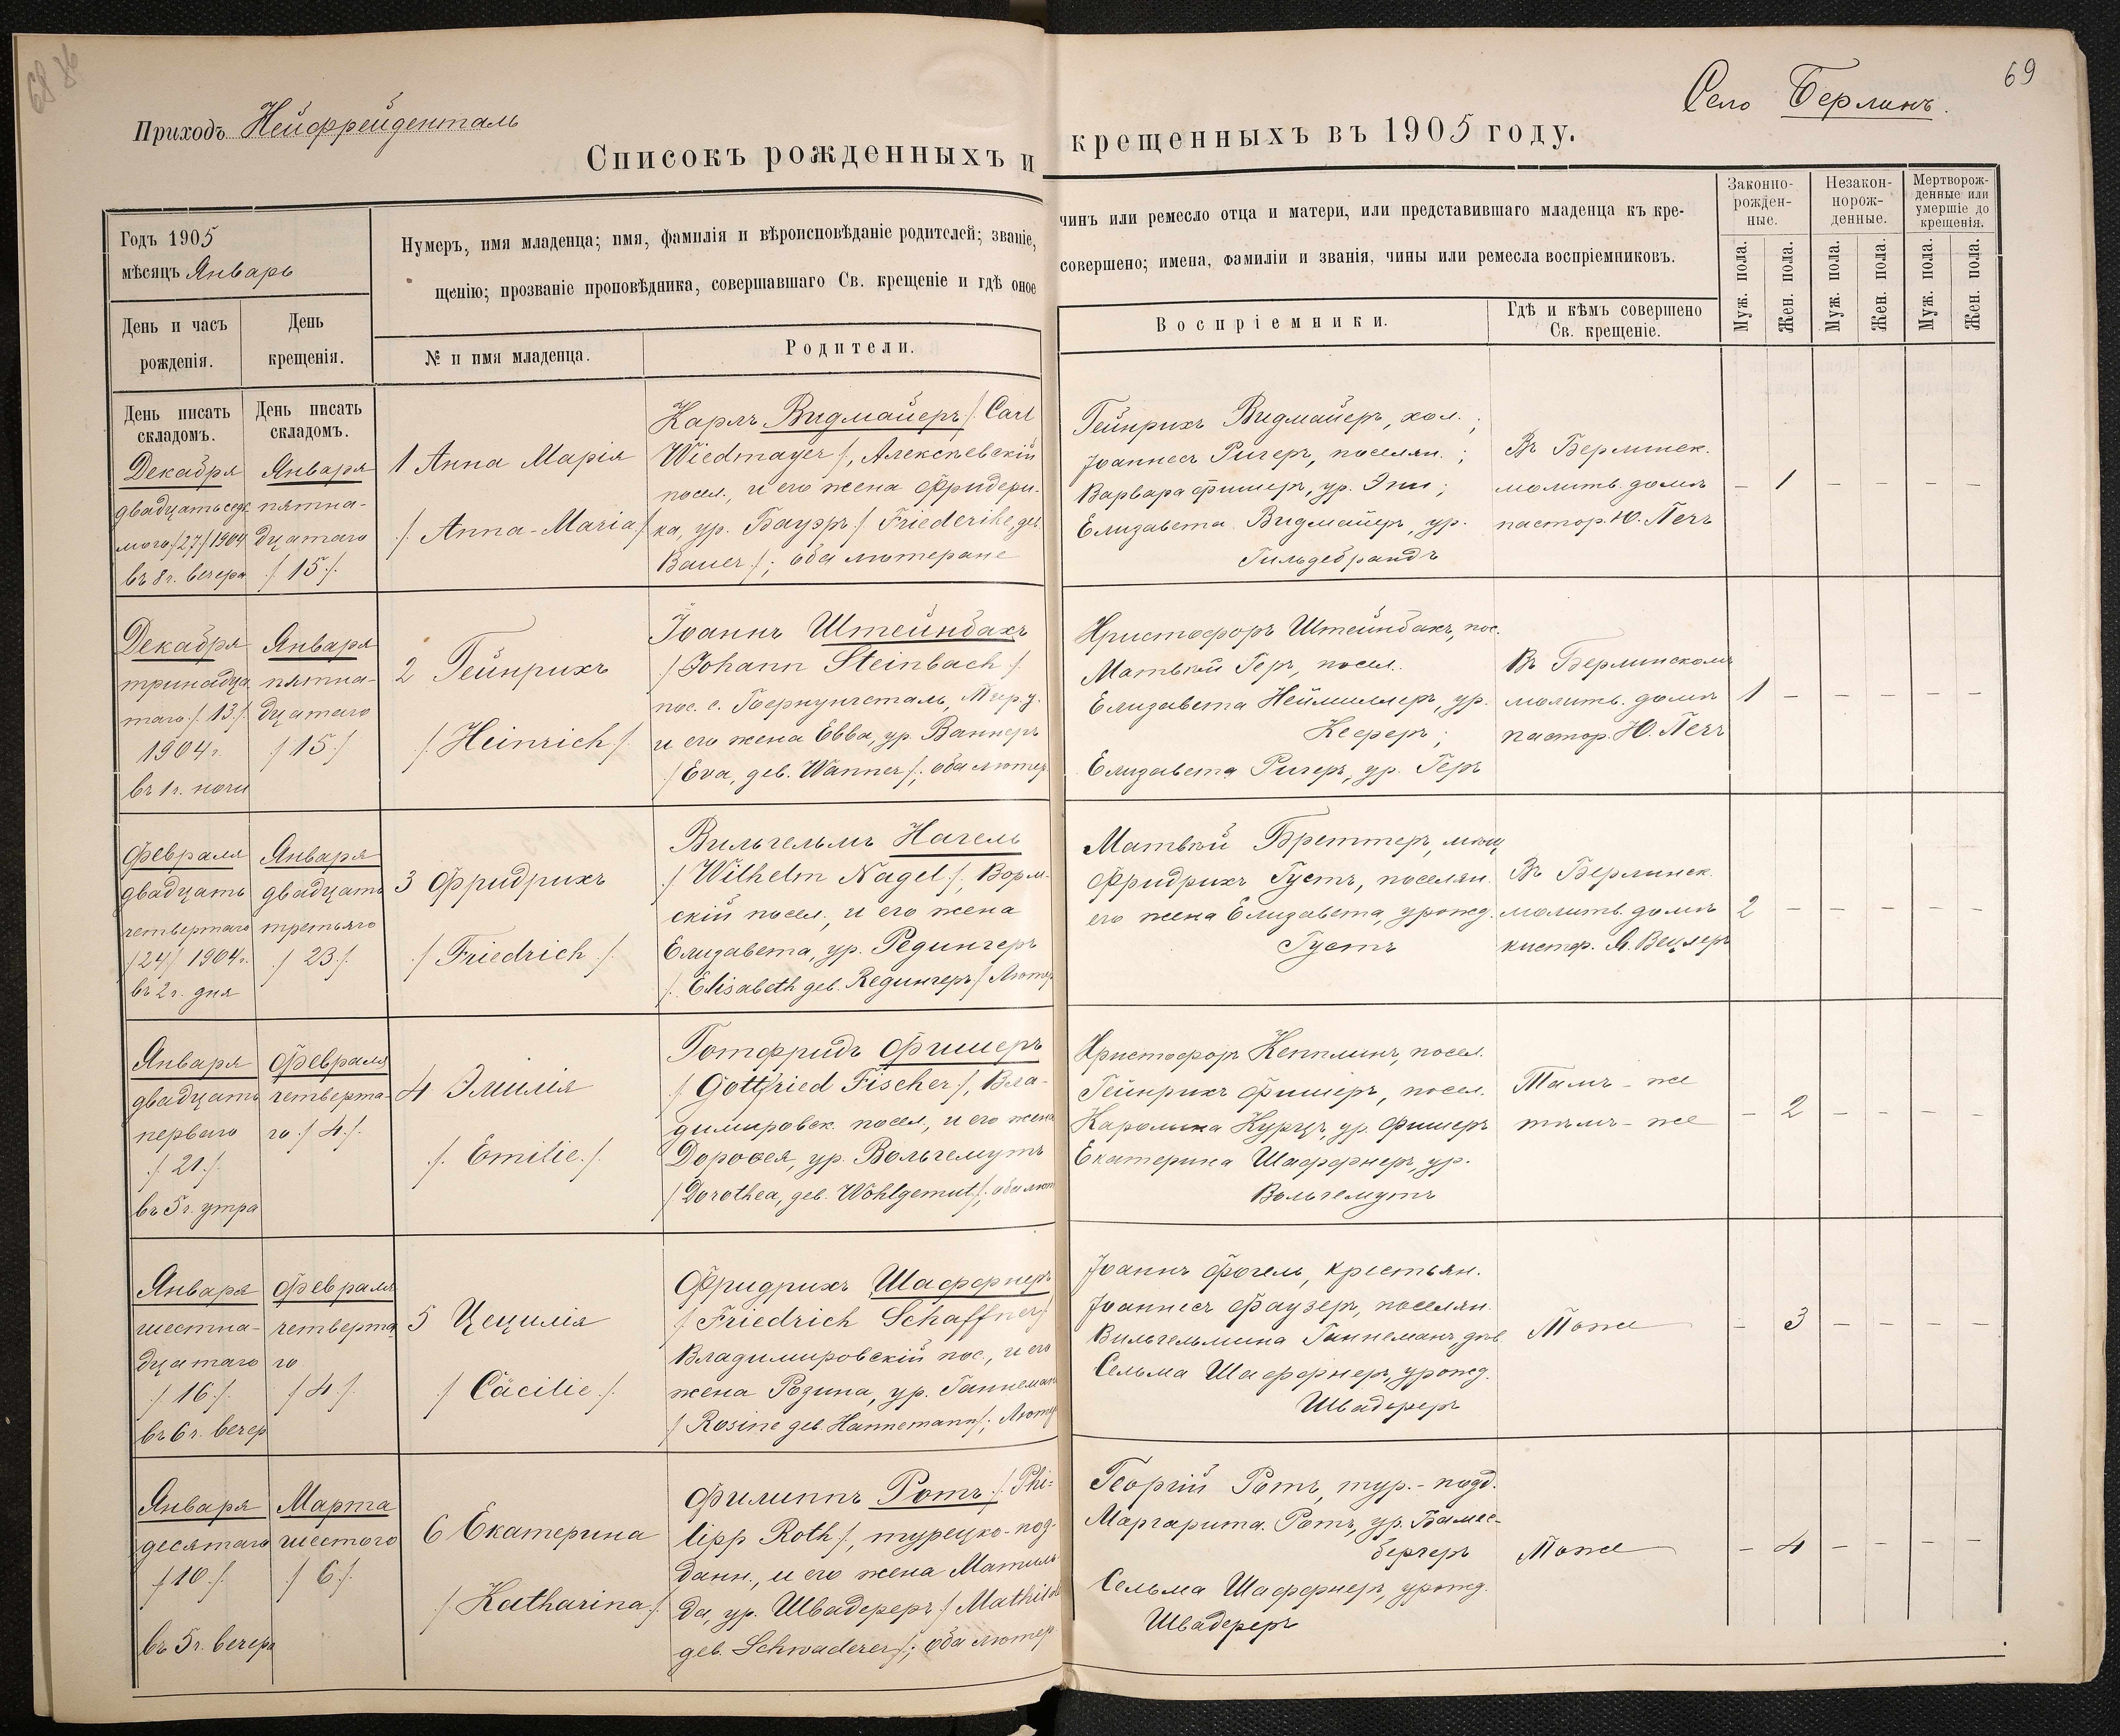 68
Приходъ Нейфрейденталь
Село Берлинъ.
69
Списокъ рожденныхъ и крещенныхъ въ 1905 году.
Годъ 1905
мѣсяцъ Январь
День и часъ
рожденія.
День
крещенія.
Нумеръ, имя младенца; имя, фамилія и вѣроисповѣданіе родителей; званіе, чинъ или ремесло отца и матери, или представившаго младенца къ кре-
щенію; прозваніе проповѣдника, совершавшаго Св. крещеніе и гдѣ оное совершено; имена, фамиліи и званія, чины или ремесла воспріемниковъ.
№ и имя младенца.
Родители.
Воспріемники.
Гдѣ и кѣмъ совершено
Св. крещеніе.
Законно-
рожден-
ные.
Незакон-
норож-
денные.
Мертворож-
денные или
умершіе до
крещенія.
Муж. пола.
Жен. пола.
Муж. пола.
Жен. пола.
Муж. пола.
Жен. пола.
День писать
складомъ.
День писать
складомъ.
Декабря
двадцатьсед
мого /27/ 1904
въ 8 г. вечера
Января
пятна-
дцатаго
/15./.
1 Анна Марія
/. Anna-Maria /.
Карлъ Видмайеръ /. Carl
Wiedmayer /., Алексѣевскій
посел., и его жена Фридери-
ка, ур. Бауэръ /. Friederike, geb.
Bauer /.; оба лютеране
Гейнрихъ Видмайеръ, кол. ;
Іоаннесъ Ригеръ, поселян. ;
Варвара Фишеръ, ур. Эпи ;
Елизавета Видмайеръ, ур.
Гильдебрандъ
Въ Берлинск.
молитв. домѣ
пастор. Ю. Печъ
– 1 – – – –
Декабря
тринадца
таго /. 13 /.
1904 г.
въ 1 г. ночи
Января
пятна-
дцатаго
/15 /
2 Гейнрихъ
/. Heinrich /.
Іоаннъ Штейнбахъ
/ Johann Steinbach /.
и его жена Евва, ур. Ваннеръ
/ Eva, geb. Wanner /.; оба лютер.
Христофоръ Штейнбахъ, пос.
Матвѣй Геръ, посел.
Елизавета Неймиллеръ, ур.
Кеферъ ;
Елизавета Ригеръ, ур. Геръ
Въ Берлинскомъ
молитв. домѣ
пастор. Ю. Печъ
1 – – – – –
Февраля
двадцать
четвертаго
/24/ 1904 г.
въ 2 г. дня
Января
двадцать
третьяго
/ 23 /.
3 Фридрихъ
./ Friedrich /.
Вильгельмъ Нагель
/ Wilhelm Nagel /., Ворм-
скій посел., и его жена
Елизавета, ур. Редингеръ
/. Elisabeth geb. Редингеръ / Лютер
Матвѣй Бреттеръ, мѣщ
Фридрихъ Густъ, поселян.
его жена Елизавета, урожд.
Густъ
Въ Берлинск.
молитв. домѣ
кистер. Я. Вецлеръ
2 – – – – –
Января
двадцать
перваго
./ 21 /.
въ 5 г. утра
Февраля
четверта-
го /. 4 /.
4 Эмилія
/. Emilie /.
Готфридъ Фишеръ
/ Gottfried Fischer /, Вла-
димировск. посел, и его жена
Доровея, ур. Вольгемутъ
/ Dorothea, geb. Wohlgemut /.; оба лют
Христофоръ Кепплинъ, посел.
Гейнрихъ Фишеръ, посел.
Каролина Курцъ, ур. Фишеръ
Екатерина Шаффнеръ, ур.
Вольгемутъ
Тамъ-же
тѣмъ-же
– 2 – – – –
Января
шестна-
дцатаго
/ 16 /.
въ 6 г. вечер
Февраля
четверта
го
/ 4 /.
5 Цецилія
/ Cäcilie /.
Фридрихъ Шаффнеръ
/ Friedrich Schaffner /
Владимировскій пос., и его
жена Розина, ур. Ганнеман
/ Rosine geb. Hannemann /.; Лютер
Іоаннъ Фогель, крестьян.
Іоаннесъ Фаузеръ, поселян.
Вильгельмина Ганнеманъ, дѣв.
Сельма Шаффнеръ, урожд.
Швадереръ
Тоже
– 3 – – – –
Января
десятаго
/ 10 /.
въ 5 г. вечера
Марта
шестого
/ 6 /.
6 Екатерина
/ Katharina /.
Филиппъ Ротъ /. Phi-
lipp Roth /., турецко-под-
данн., и его жена Матиль-
да, ур. Швадереръ / Mathilde
geb. Schwaderer /.; оба лютер
Георгій Ротъ, тур.-подд.
Маргарита Ротъ, ур. Бамес-
бергеръ
Сельма Шаффнеръ, урожд.
Швадереръ
Тоже
– 4 – – – –